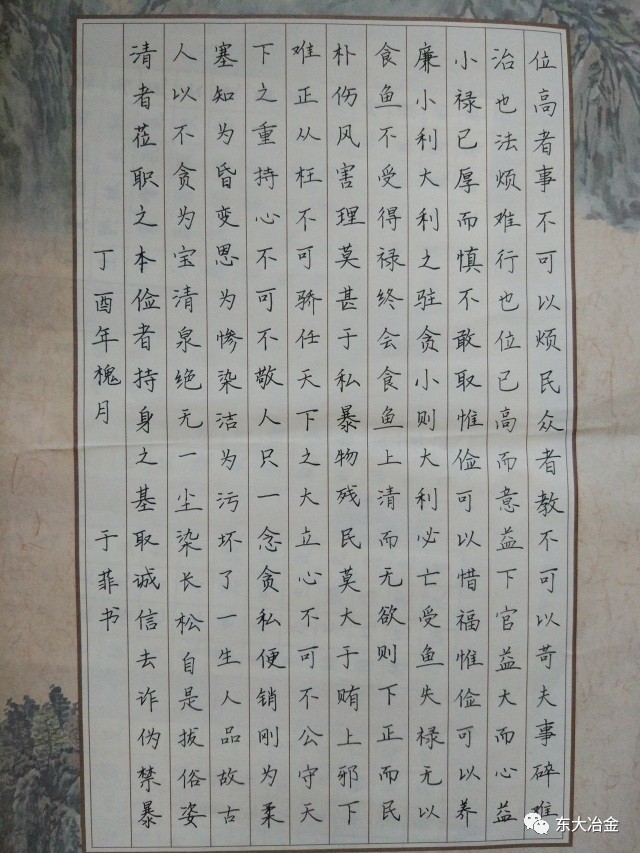 位高者事不可以烦民众者教不可以苛夫事碎难
治也法烦难行也位已高而意益下官益大而心益
小禄已厚而慎不敢取惟俭可以惜福惟俭可以养
廉小利大利之驻贪小则大利必亡受鱼失禄无以
食鱼不受得禄终会食鱼上清而无欲则下正而民
朴伤风害理莫甚于私暴物残民莫大于贿上邪下
难正从枉不可骄任天下之大立心不可不公守天
下之重持心不可不敬人只一念贪私便销刚为柔
塞知为昏变思为惨染洁为污坏了一生人品故古
人以不贪为宝清泉绝无一尘染长松自是拔俗姿
清者莅职之本俭者持身之基取诚信去诈伪禁暴
丁酉年槐月 于菲书
东大冶金